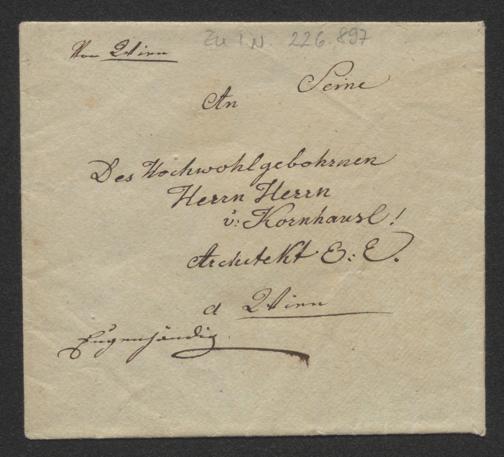 Zu I.N. 226.897
Von Wien
Seine
An
Des Hochwohlgebohrnen
Herrn Herrn
v: Kornhäusl!
Architekt E: E.
a Wien
Eugenhändig.